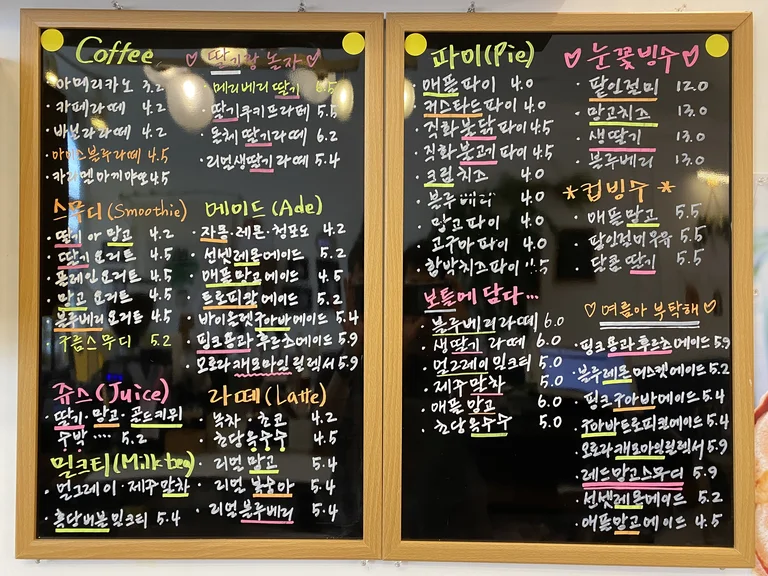 Coffee
아메리카노 3.2
카페라떼 4.2
바닐라라떼 4.2
아이스블루라떼 4.5
카라멜마끼야또 4.5
스무디 (Smoothie)
딸기 아 망고 4.2
딸기 요거트 4.5
플레인 요거트 4.5
망고 요거트 4.5
블루베리 요거트 4.5
구름스무디 5.2
쥬스 (Juice)
딸기·망고·골드키위
수박 .... 5.2
밀크티 (Milk tea)
얼그레이·제주말차
흑당버블밀크티 5.4
♡ 딸기랑 놀자 ♡
메리베리딸기 6.5
딸기쿠키프라페 5.5
돌체 딸기라떼 6.2
리얼생딸기라떼 5.4
에이드 (Ade)
자몽·레몬·청포도 4.2
선셋레몬에이드 5.2
애플망고에이드 4.5
트로피칼에이드 5.2
바이올렛구아바에이드 5.4
핑크용과후르츠에이드 5.9
오로라캐모마일릴렉서 5.9
라떼 (Latte)
녹차·초코 4.2
초당옥수수 4.5
리얼 망고 5.4
리얼 복숭아 5.4
리얼 블루베리 5.4
파이 (Pie)
애플파이 4.0
커스타드파이 4.0
직화불닭파이 4.5
직화불고기파이 4.5
크림치즈 4.0
블루베리 4.0
망고파이 4.0
고구마파이 4.0
함박치즈파이
보틀에 담다...
블루베리라떼 6.0
생딸기라떼 6.0
얼그레이밀크티 5.0
제주말차 5.0
애플망고 6.0
초당옥수수 5.0
♡ 눈꽃빙수 ♡
팥인절미 12.0
망고치즈 13.0
생딸기 13.0
블루베리 13.0
* 컵빙수 *
애플망고 5.5
팥인절미우유 5.5
달콤딸기 5.5
♡ 여름아 부탁해 ♡
핑크용과후르츠에이드 5.9
블루레몬머스켓에이드 5.2
핑크구아바에이드 5.4
구아바트로피칼에이드 5.4
오로라캐모마일릴렉서 5.9
레드망고스무디 5.9
선셋레몬에이드 5.2
애플망고에이드 4.5